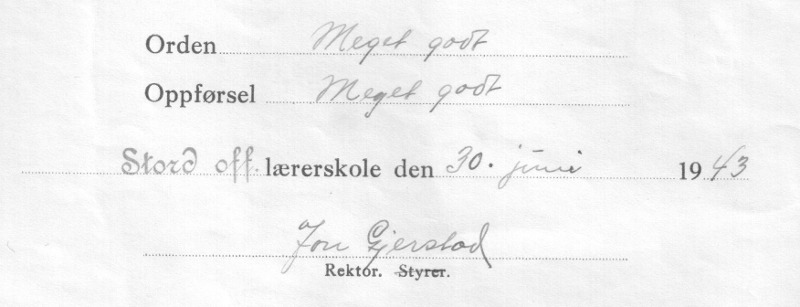 Orden Meget godt
Oppførsel Meget godt
Stord off. lærerskole den 30. juni 1943
Jon Gjerstad
Rektor. Styrer.